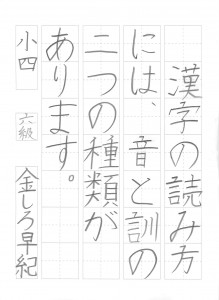 漢字の読み方
には、音と訓の
二つの種類が
あります。
小四 六級 金しろ早紀